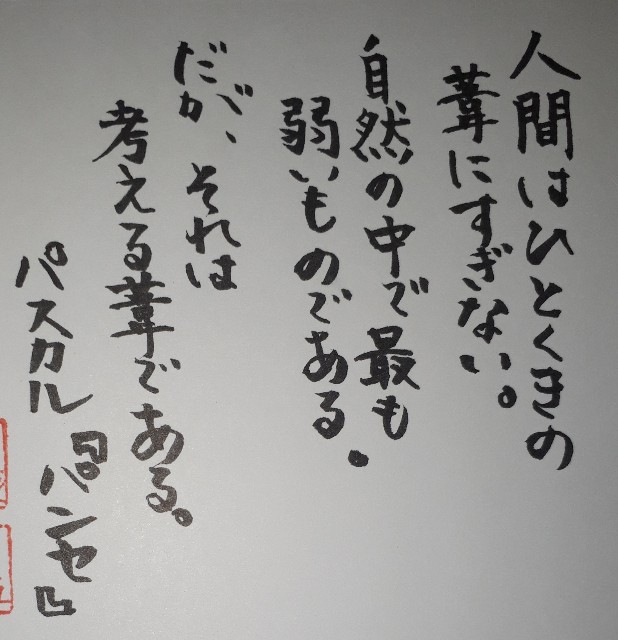 人間はひとくきの
葦にすぎない。
自然の中で最も
弱いものである。
だが、それは
考える葦である。
パスカル『パンセ』